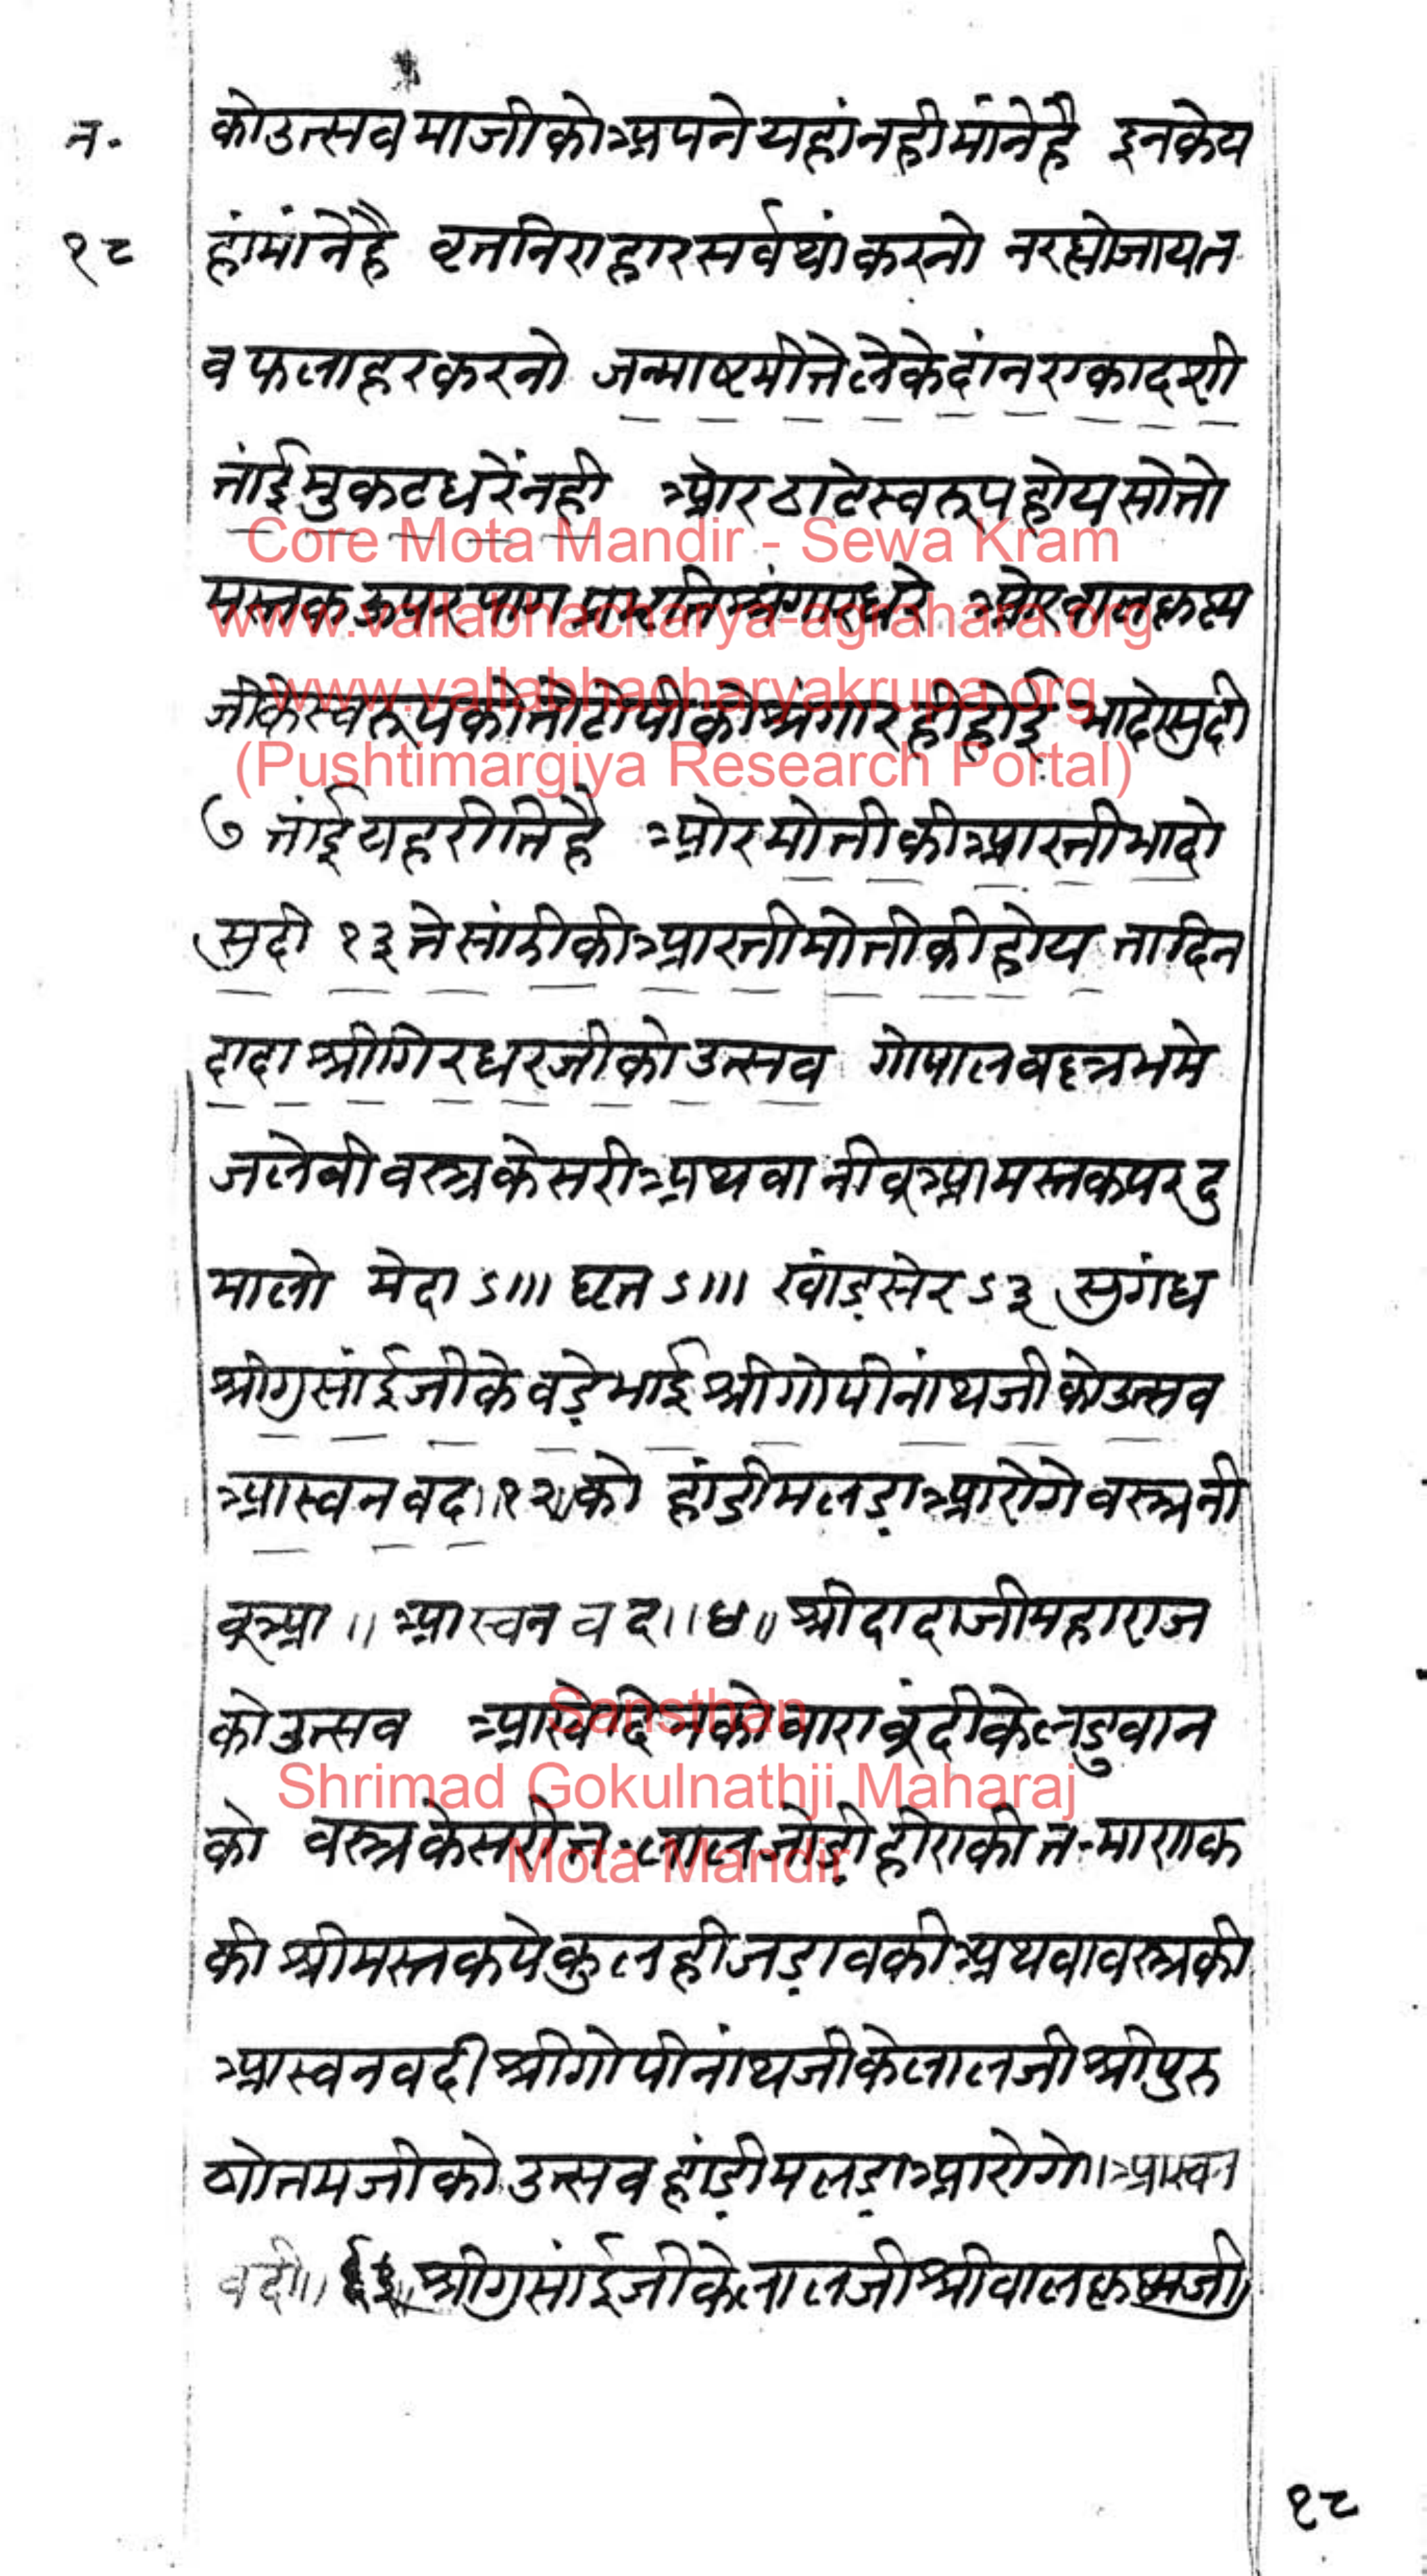 न.
१८
को उत्सव माजी को अपने यहां नही मांने है इनके य
हां मांने है व्रत निराहार सर्वथां करनो न रह्यो जाय त
व फलाहर करनो जन्माष्टमी ते लेके दांन एकादशी
तांई मुकट धरें नही ओर ठाटे स्वरूप होय सो तो
मस्तक ऊपर पाग प्रभृति श्रंगार धरे ओर बालकृष्ण
जी के स्वरूप को तो टोपी को श्रंगार ही होई भादो सुदी
७ तांई यह रीति है ओर मोती की आरती भादो
सुदी १३ ते सांझी की आरती मोती की होय ता दिन
दादा श्रीगिरधरजी को उत्सव गोपालवल्लभ मे
जलेवी वस्त्र केसरी अथवा नीवूआ मस्तक पर दु
मालो मेदा ऽ॥। घृत ऽ॥। खांड़ सेर ऽ३ सुगंध
श्रीगुसांईजी के वड़े भाई श्रीगोपीनांथजी को उत्सव
आस्वन वद॥१२॥को हांडी मलड़ा आरोगे वस्त्र नी
वूआ॥ आस्वन वद॥४॥ श्रीदादाजी महाराज
को उत्सव आखे दिन को वारा बूंदी के लडुवान
को वस्त्र केसरी त. लाल जोड़ी हीरा की त. माणक
की श्रीमस्तक पे कुलही जड़ाव की अथवा वस्त्र की
आस्वन वदी श्रीगोपीनांथजी के लालजी श्रीपुरु
षोत्तमजी को उत्सव हांड़ी मलड़ा आरोगे॥ आस्वन
वदी॥ श्रीगुसांईजी के लालजी श्रीवालकृष्णजी
१८
Core Mota Mandir - Sewa Kram
www.vallabhacharya-agrahara.org
www.vallabhacharyakrupa.org
(Pushtimargiya Research Portal)
Sansthan
Shrimad Gokulnathji Maharaj
Mota Mandir